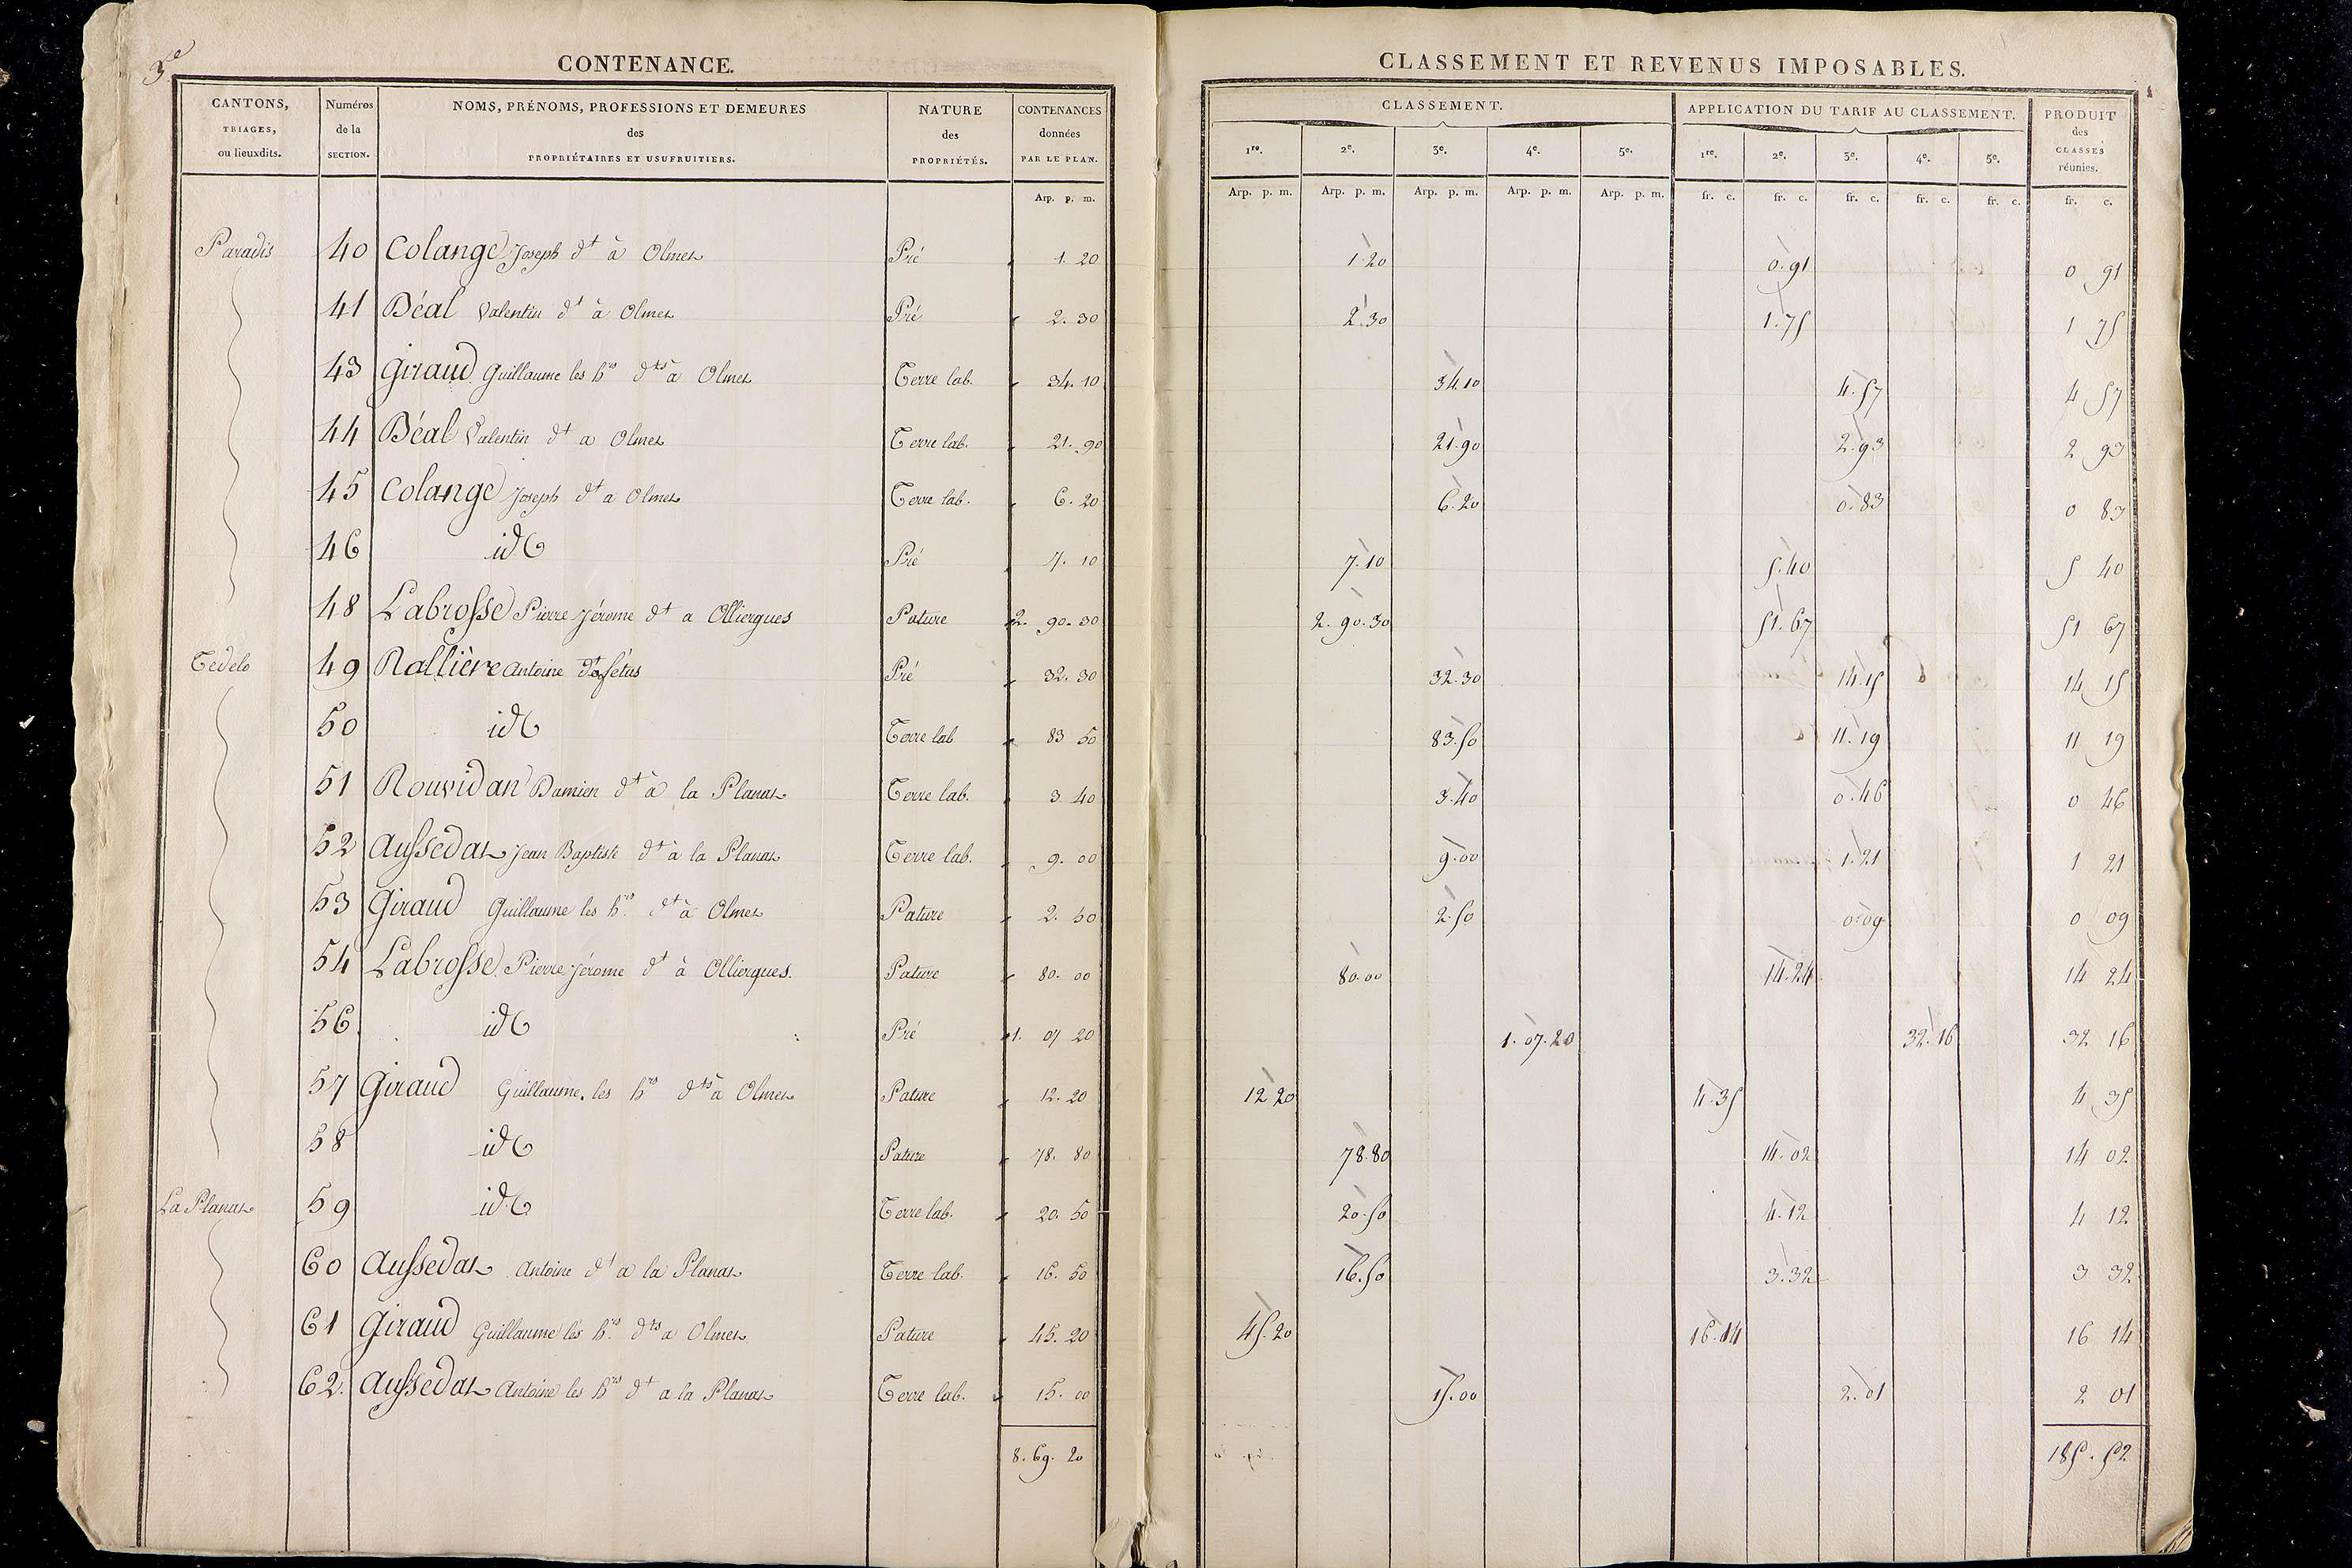 3e
CONTENANCE.
CLASSEMENT ET REVENUS IMPOSABLES.
CANTONS, TRIAGES, ou lieuxdits. Numéros de la SECTION. NOMS, PRÉNOMS, PROFESSIONS ET DEMEURES des PROPRIÉTAIRES ET USUFRUITIERS. NATURE des PROPRIÉTÉS. CONTENANCES données PAR LE PLAN. CLASSEMENT. 1re. 2e. 3e. 4e. 5e. APPLICATION DU TARIF AU CLASSEMENT. 1re. 2e. 3e. 4e. 5e. PRODUIT des CLASSES réunies.
Arp. p. m. Arp. p. m. Arp. p. m. Arp. p. m. Arp. p. m. Arp. p. m. fr. c. fr. c. fr. c. fr. c. fr. c. fr. c.
Paradis 40 Colange Joseph dt à Olmet Pré 1. 20 1.20 0.91 0 91
41 Béal Valentin dt à Olmet Pré 2. 30 2.30 1.75 1 75
43 Giraud Guillaume les hrs dts à Olmet Terre lab. 34. 10 34.10 4.57 4 57
44 Béal Valentin dt a Olmet Terre lab. 21. 90 21.90 2.93 2 93
45 Colange Joseph dt a Olmet Terre lab. 6. 20 6.20 0.83 0 83
46 id Pré 7. 10 7.10 5.40 5 40
48 Labrosse Pierre Jérome dt a Olliergues Pature 2. 90. 30 2. 90. 30 51.67 51 67
Tedelo 49 Rallière Antoine Pré 32. 30 32.30 14.15 14 15
50 id Terre lab 83 50 83.50 11.19 11 19
51 Rouvidan Damien dt à la Planat Terre lab. 3 40 3.40 0.46 0 46
52 Aussedat Jean Baptiste dt à la Planat Terre lab. 9. 00 9.00 1.21 1 21
53 Giraud Guillaume les hrs dt à Olmet Pature 2. 50 2.50 0.09 0 09
54 Labrosse Pierre Jérome dt à Olliergues. Pature 80. 00 80.00 14.24 14 24
56. id Pré 1. 07 20 1. 07. 20 32.16 32 16
57 Giraud Guillaume les hrs dts à Olmet Pature 12. 20 12 20 4.35 4 35
58 id Pature 78. 80 78.80 14.02 14 02
La Planat 59 id Terre lab. 20. 50 20.50 4.12 4 12
60 Aussedat Antoine dt a la Planat Terre lab. 16. 50 16.50 3.32 3 32
61 Giraud Guillaume les hrs dts a Olmet Pature 45. 20 45.20 16.14 16 14
62. Aussedat Antoine les hrs dt a la Planat Terre lab. 15. 00 15.00 2.01 2 01
8. 69. 20 185. 52